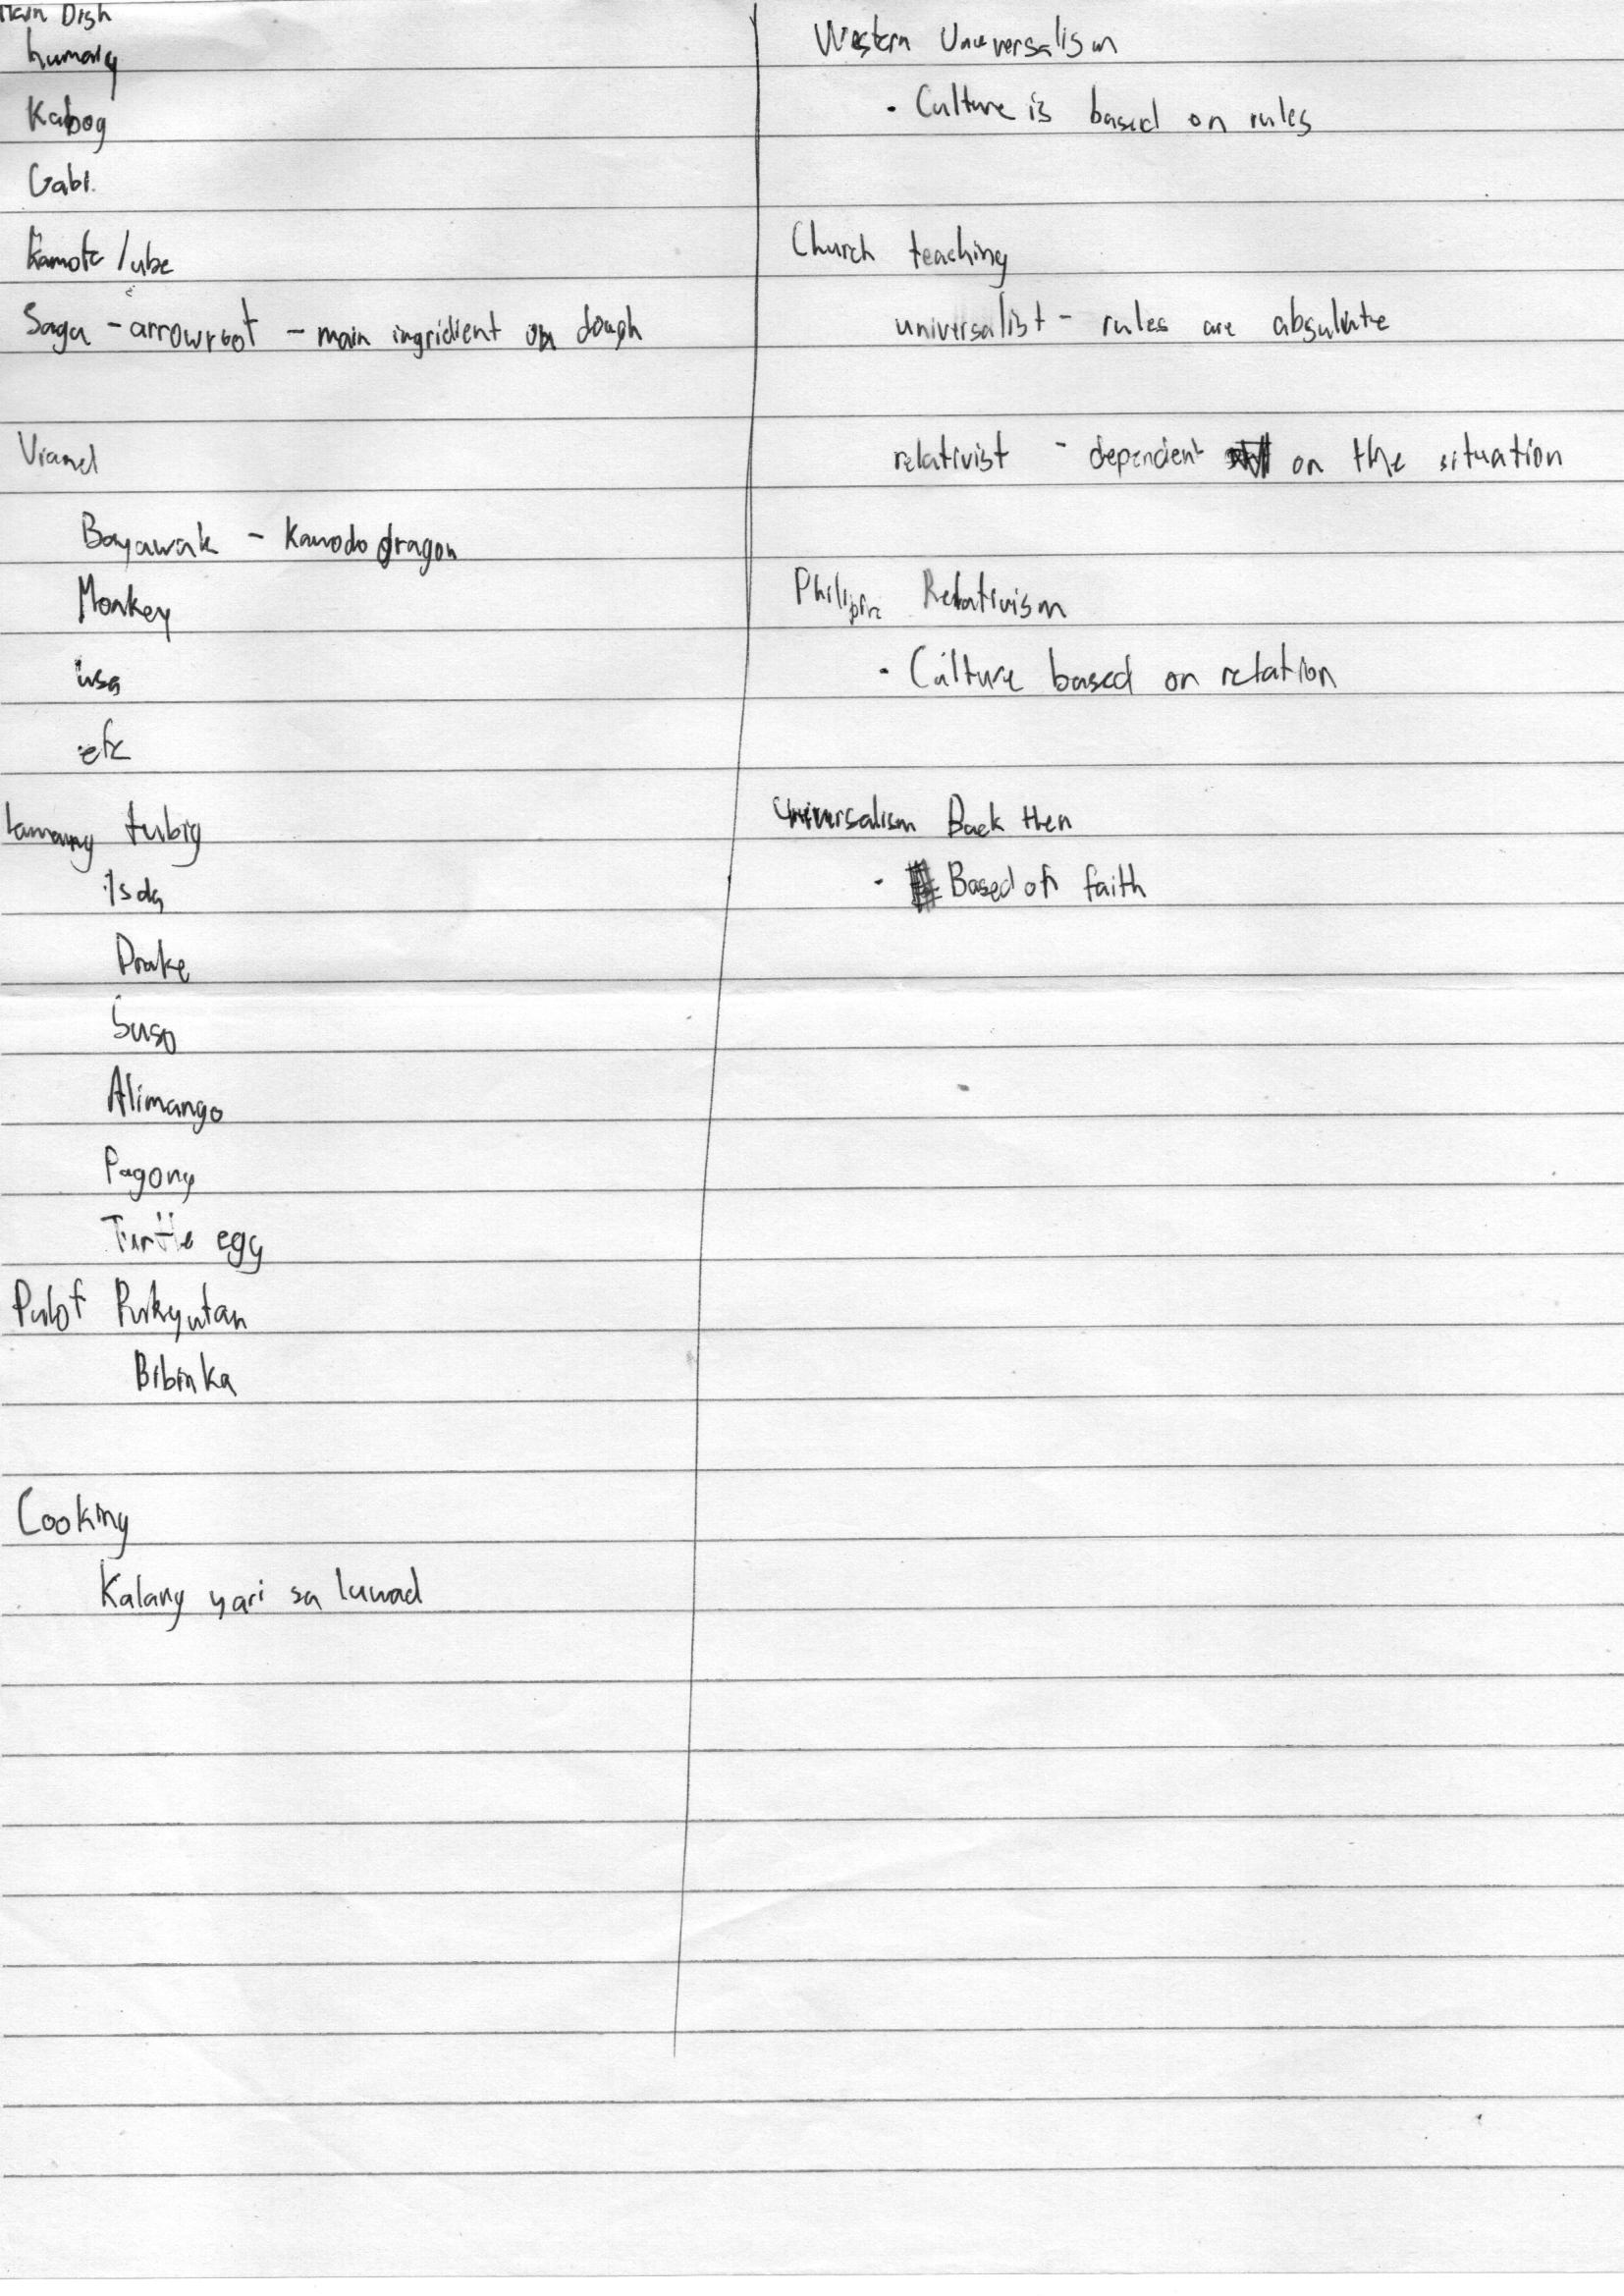 Main Dish
humay
Kabog
Gabi.
Kamote / ube
Sagu - arrowroot - main ingridient on dough
Viand
Bayawak - Kamodo dragon
Monkey
usa
etc
lamang tubig
Isda
Suso
Alimango
Pagong
Turtle egg
Pulot Pukyutan
Bibinka
Cooking
Kalang yari sa luwad
Western Universalism
• Culture is based on rules
Church teaching
universalist - rules are absulute
relativist - dependent on the situation
Philipine Relativism
• Culture based on relation
Universalism Back then
• Based on faith